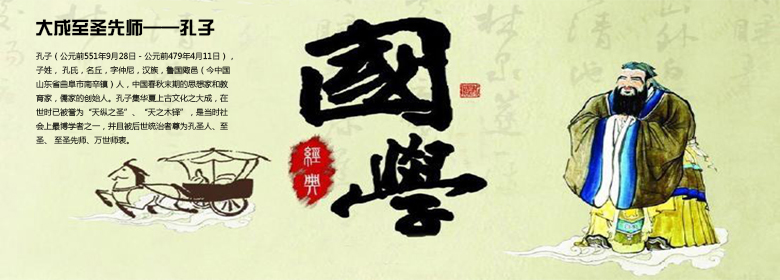 大成至圣先师——孔子
孔子（公元前551年9月28日－公元前479年4月11日），
子姓，孔氏，名丘，字仲尼，汉族，鲁国陬邑（今中国
山东省曲阜市南辛镇）人，中国春秋末期的思想家和教
育家，儒家的创始人。孔子集华夏上古文化之大成，在
世时已被誉为“天纵之圣”、“天之木铎”，是当时社
会上最博学者之一，并且被后世统治者尊为孔圣人、至
圣、至圣先师、万世师表。
國學
經典